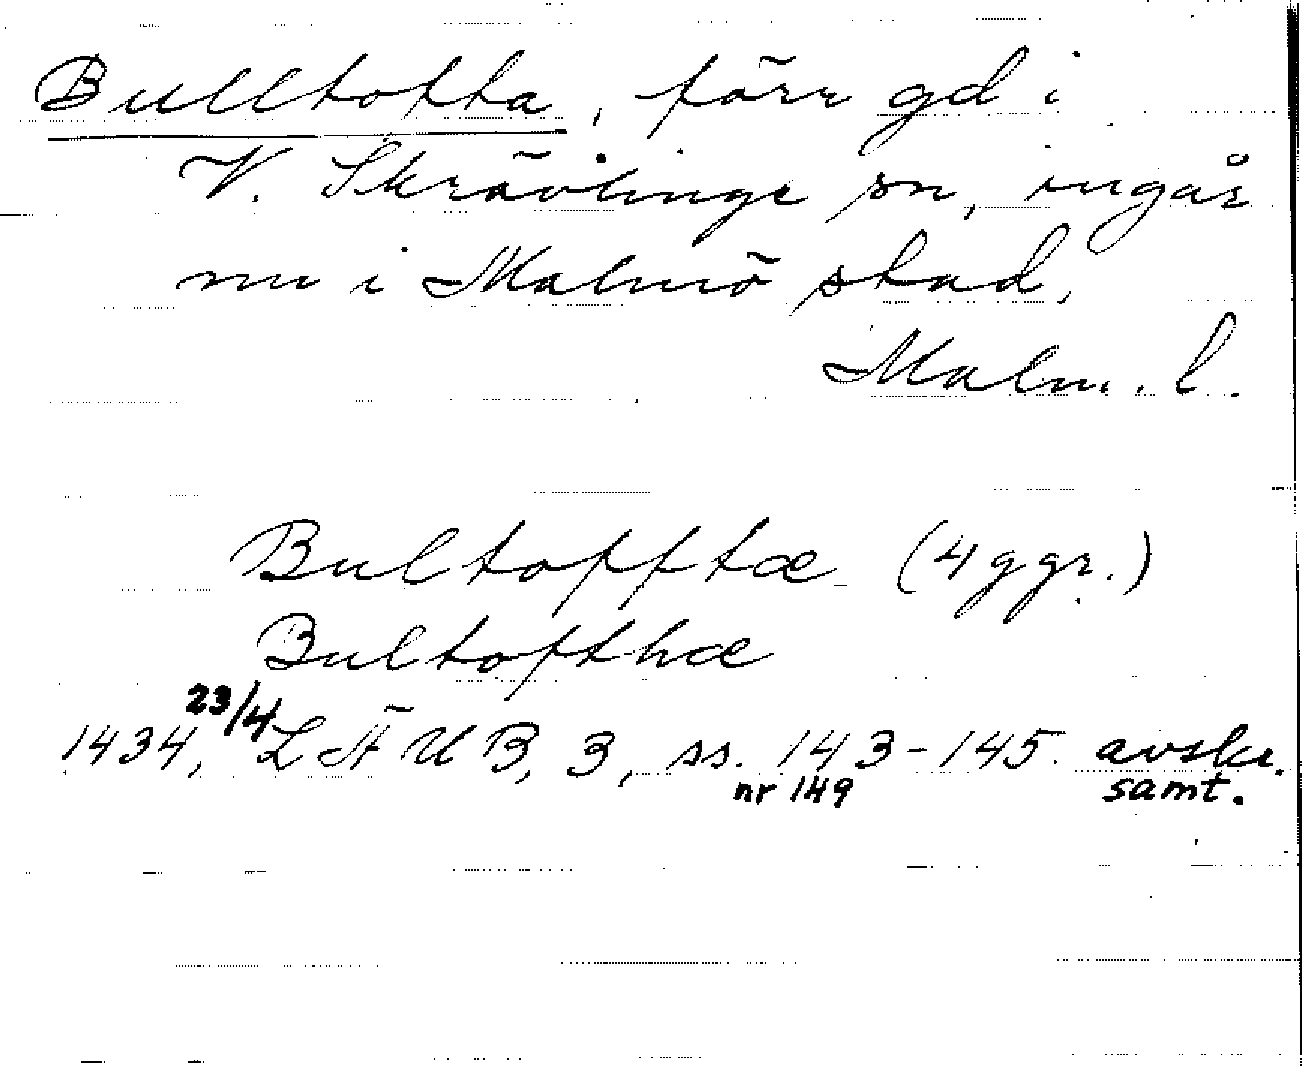 Bulltofta, förr gd i
V. Skrävlinge sn, ingår
nu i Malmö stad,
Malm. l.
Bultopftæ (4 ggr.)
Bultofthæ
1434, 23/4 LÄUB, 3, ss. 143-145. avskr.
nr 149 samt.